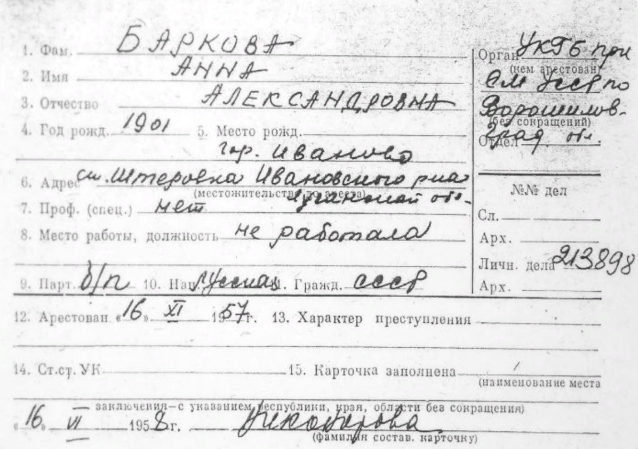 1. Фам. БАРКОВА
2. Имя АННА
3. Отчество АЛЕКСАНДРОВНА
4. Год рожд. 1901 5. Место рожд.
гор. Иваново
6. Адрес ст. Штеровка Ивановского р-на
(местожительство до ареста)
Луганской обл.
7. Проф. (спец.) нет
8. Место работы, должность не работала
9. Парт. б/п 10. Нац. русская 11. Гражд. СССР
12. Арестован «16» XI 1957 г. 13. Характер преступления
14. Ст.ст. УК 15. Карточка заполнена
(наименование места
заключения—с указанием республики, края, области без сокращения)
«16» VI 1958 г.
(фамилия состав. карточку)
Орган УКГБ при
(кем арестован)
СМ УССР по
Ворошилов-
(без сокращений)
Отдел град. обл.
№№ дел
Сл.
Арх.
Личн. дела 213898
Арх.